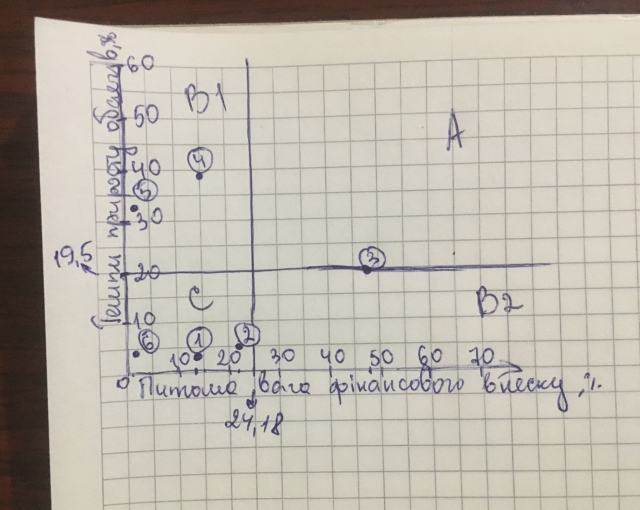 Темпи приросту обсягів, %
60
В1
50
А
④
40
⑤
30
19,5
③
20
С
В2
10
⑥
①
②
10 20 30 40 50 60 70
0
Питома вага фінансового внеску, %.
24,18